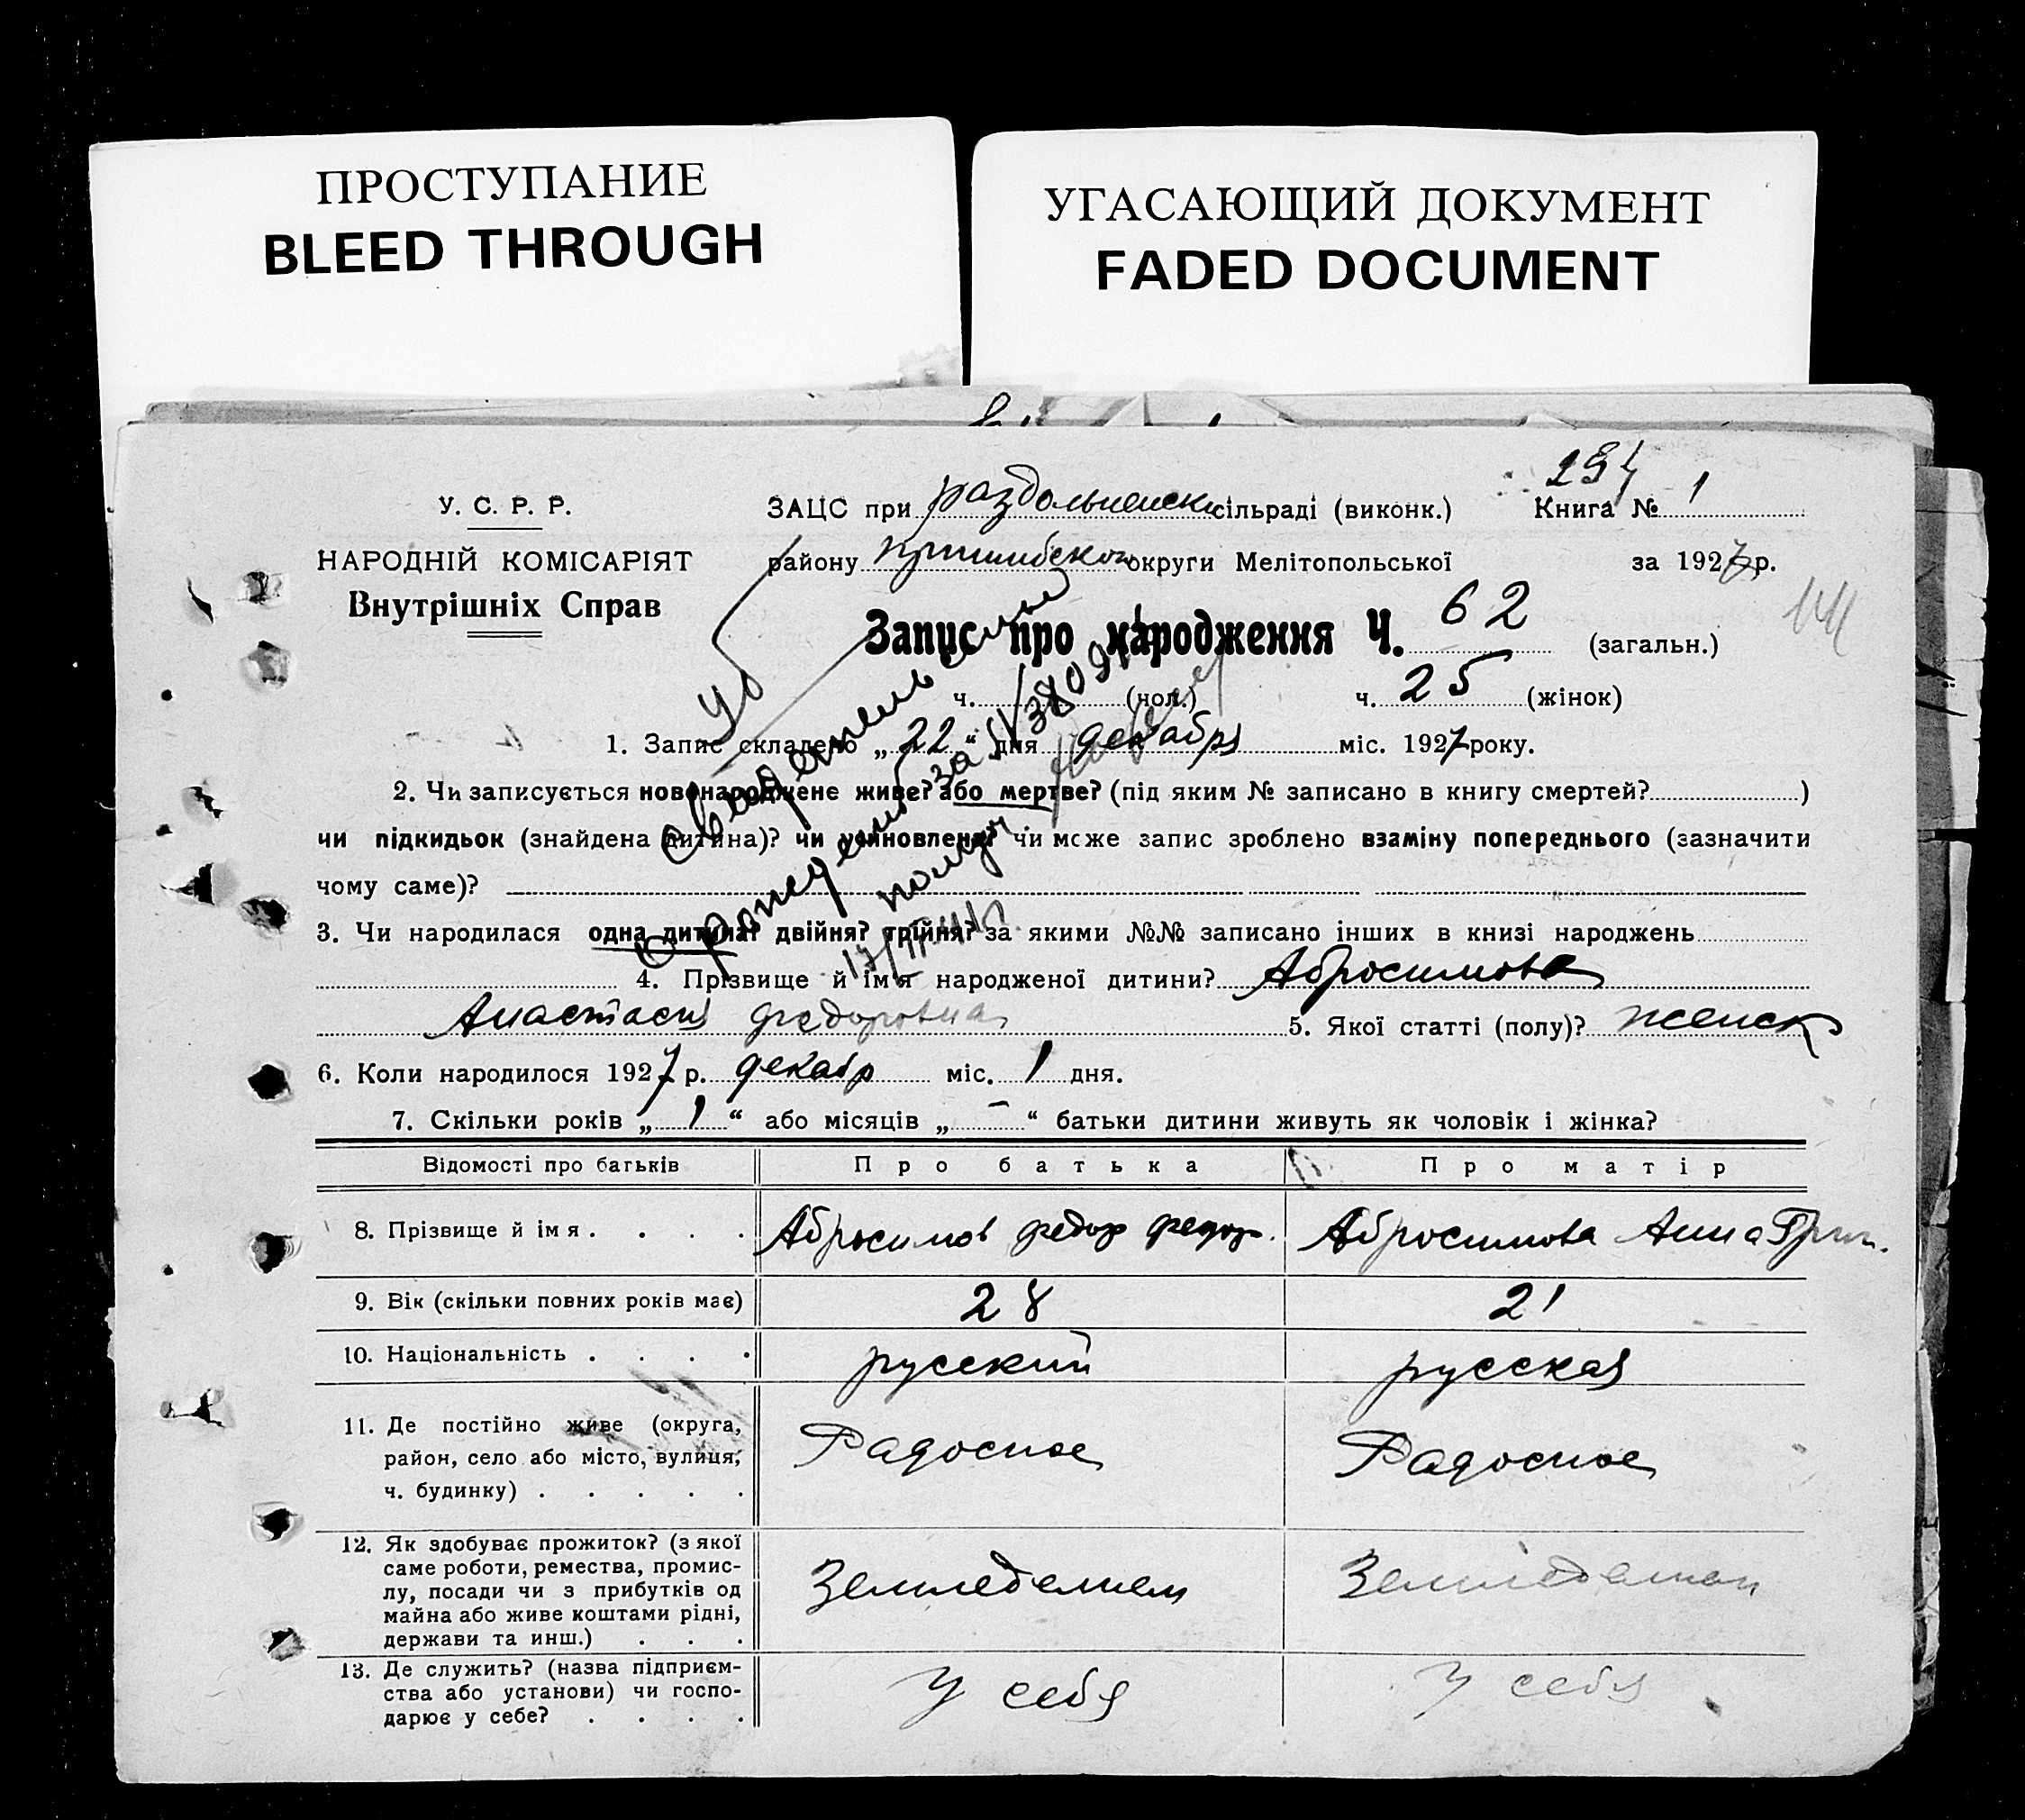 ПРОСТУПАНИЕ
BLEED THROUGH
УГАСАЮЩИЙ ДОКУМЕНТ
FADED DOCUMENT
У. С. Р. Р.
НАРОДНІЙ КОМІСАРІЯТ
Внутрішніх Справ
ЗАЦС при раздольненск сільраді (виконк.) Книга № 1
району пришибской округи Мелітопольської за 1927 р.
Запис про народження Ч. 62 (загальн.)
ч. (чол.) ч. 25 (жінок)
1. Запис складено „ 22 “ дня декабря міс. 1927 року.
2. Чи записується новонароджене живе? або мертве? (під яким № записано в книгу смертей? )
чи підкидьок (знайдена дитина)? чи усиновлене? чи може запис зроблено взаміну попереднього (зазначити
чому саме)?
3. Чи народилася одна дитина? двійня? трійня? за якими №№ записано інших в книзі народжень
4. Прізвище й ім'я народженої дитини? Абросимова
Анастасия Федоровна 5. Якої статті (полу)? женск
6. Коли народилося 1927 р. декабр міс. 1 дня.
7. Скільки років „ 1 “ або місяців „ - “ батьки дитини живуть як чоловік і жінка?
Свидетельство
о рождении
Відомості про батьків Про батька Про матір
8. Прізвище й ім я . . . . Абросимов Федор Федор. Абросимова Анна Григ.
9. Вік (скільки повних років має) 28 21
10. Національність . . . . русский русская
11. Де постійно живе (округа,
район, село або місто, вулиця,
ч. будинку) . . . . . Радосное Радосное
12. Як здобуває прожиток? (з якої
саме роботи, ремества, промис-
лу, посади чи з прибутків од
майна або живе коштами рідні,
держави та инш.) . . . Земледелием Земледелием
13. Де служить? (назва підприєм-
ства або установи) чи госпо-
дарює у себе? . . . . У себя У себя